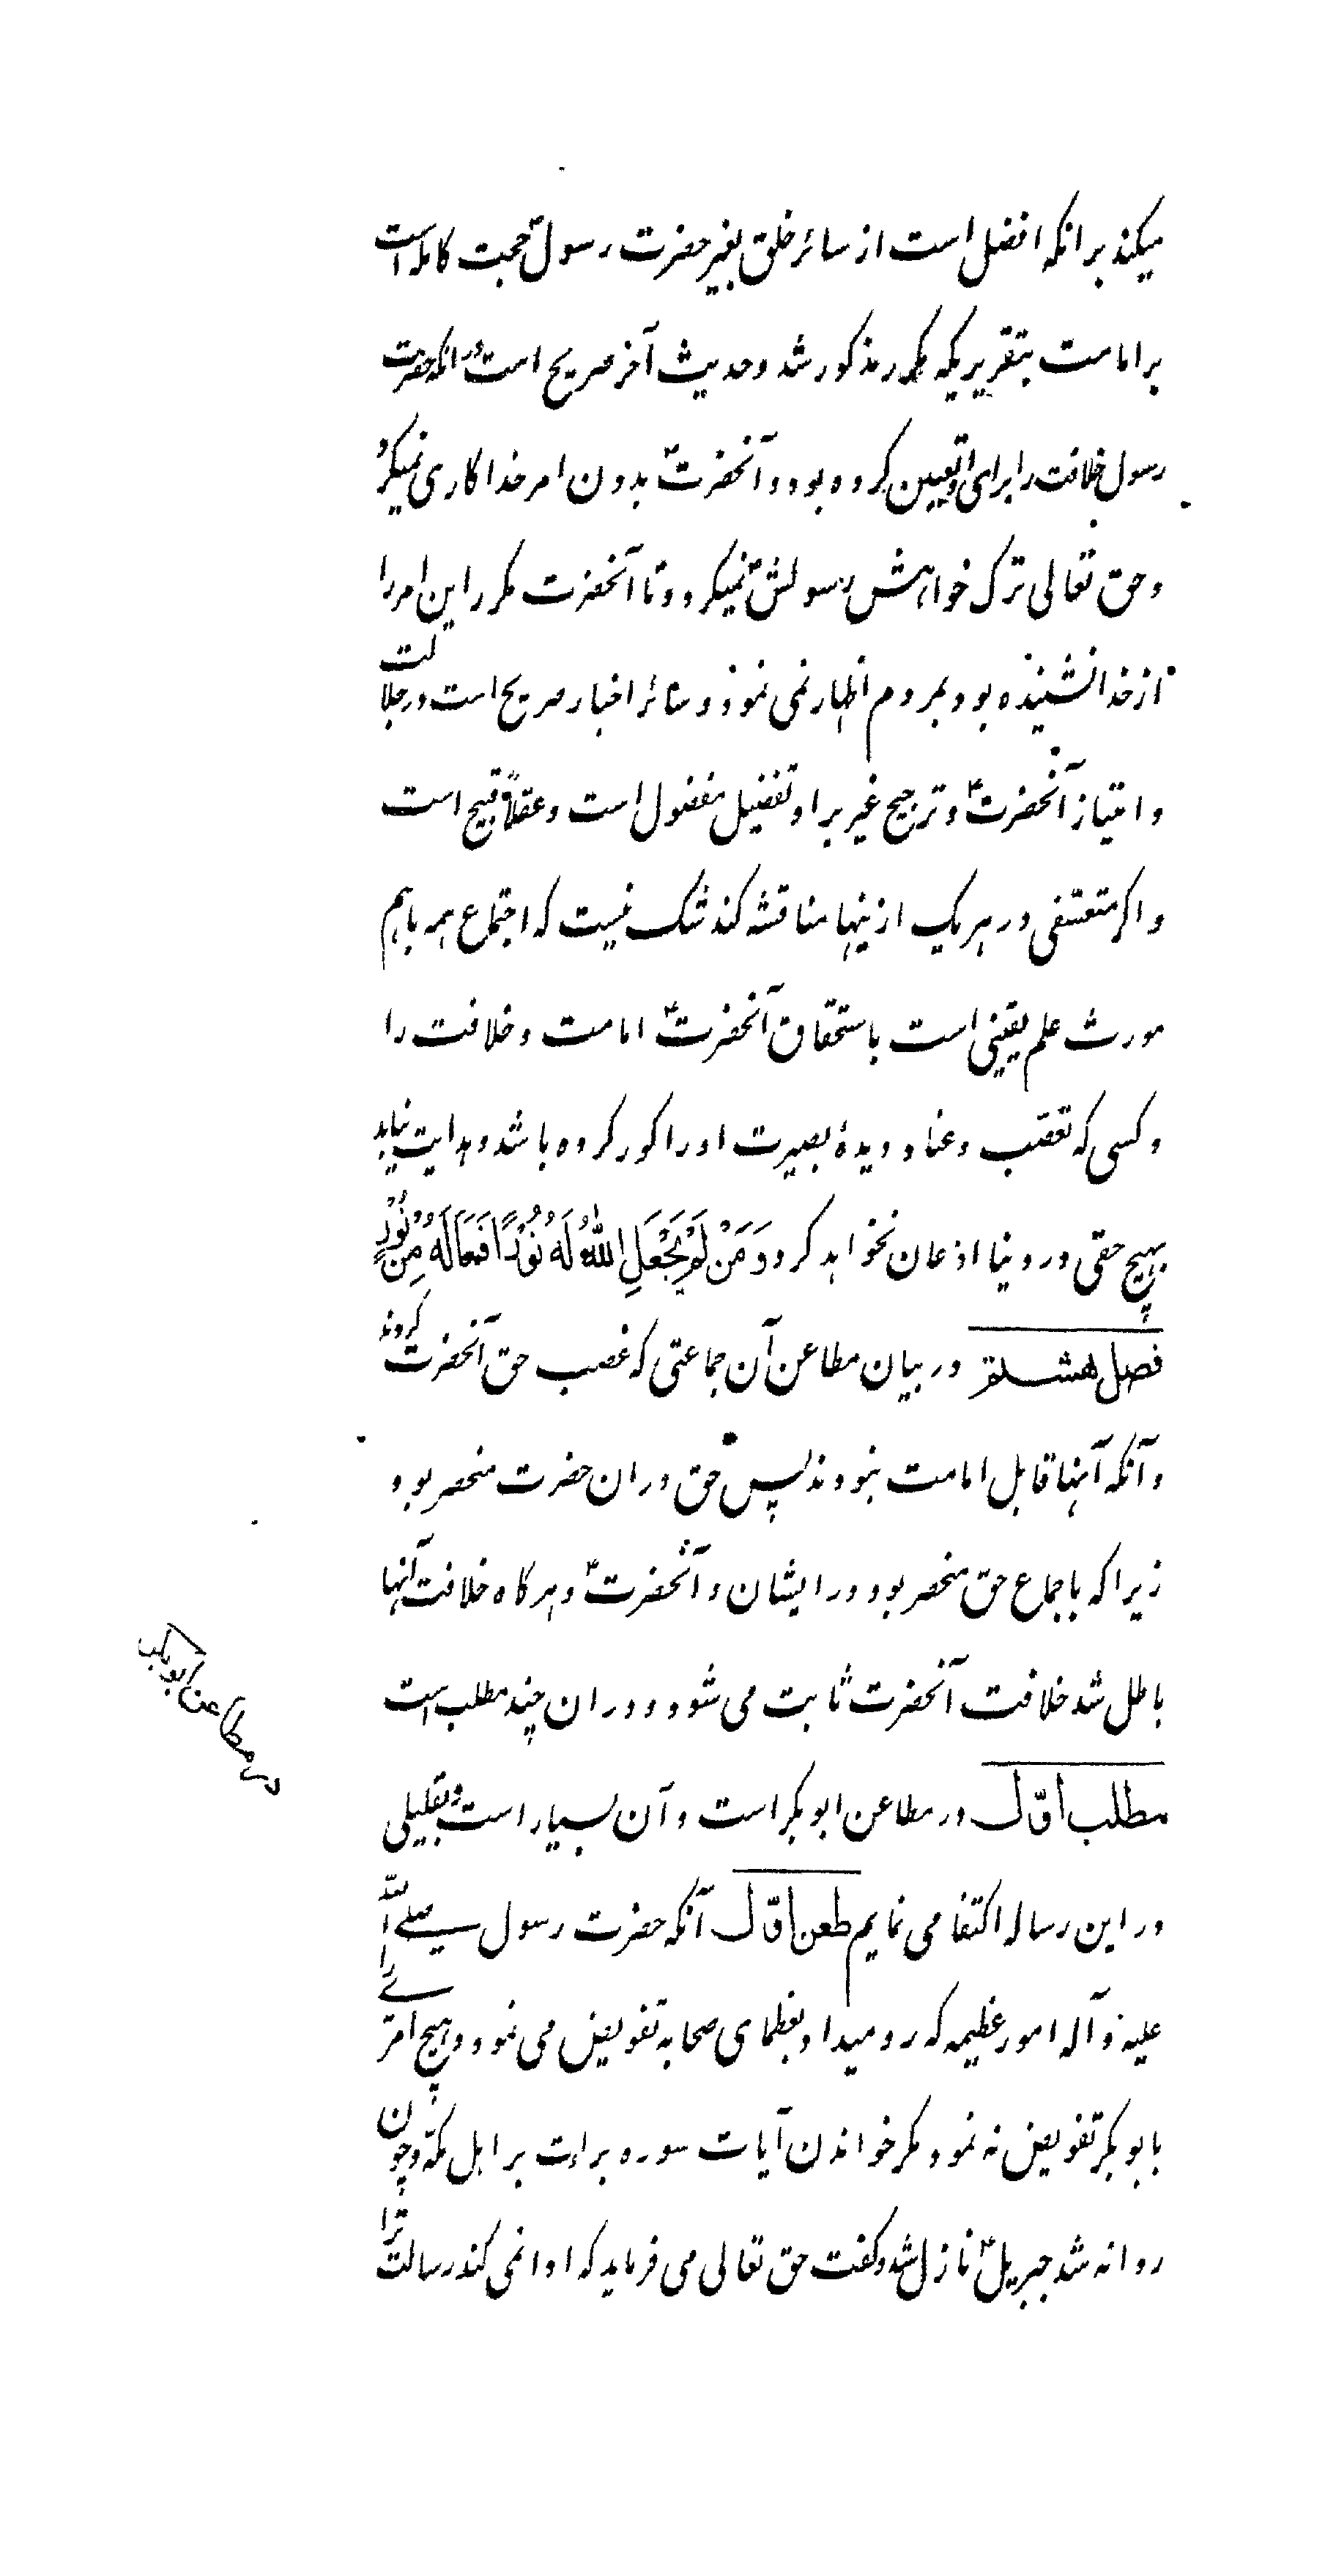 میکند برانکه افضل است از سائر خلق بغیر حضرت رسول و حجت کامله است
بر امامت بتقریریکه مکرر مذکور شد و حدیث آخر صریح است در انکه حضرت
رسول خلافت را برای او تعیین کرده بود و آنحضرتؐ بدون امر خدا کاری نمیکرد
و حق تعالی ترک خواهش رسولشؐ نمیکرد و تا آنحضرت مکرر این امر را
از خدا نشنیده بود بمردم اظهار نمی نمود و سائر اخبار صریح است در جلالت
و امتیاز آنحضرتؑ و ترجیح غیر بر او تفضیل مفضول است و عقلاً قبیح است
و اکر متعسفی در هر یک ازینها مناقشه کند شک نیست که اجتماع همه باهم
مورث علم یقینی است باستحقاق آنحضرتؑ امامت و خلافت را
و کسی که تعصّب و عناد دیدهٔ بصیرت او را کور کرده باشد و هدایت نیابد
بهیچ حقی در دنیا اذعان نخواهد کرد وَمَنْ لَمْ یَجْعَلِ اللهُ لَهُ نُوْرًا فَمَا لَهُ مِنْ نُوْرٍ
فصل هشتم در بیان مطاعن آن جماعتی که غصب حق آنحضرت کردند
و آنکه آنها قابل امامت نبودند پس حق دران حضرت منحصر بود
زیرا که باجماع حق منحصر بود در ایشان و آنحضرتؑ و هرکاه خلافت آنها
باطل شد خلافت آنحضرت ثابت می شود و دران چند مطلب است
مطلب اوّل در مطاعن ابو بکر است و آن بسیار است و بقلیلی
در این رساله اکتفا می نمایم طعن اوّل آنکه حضرت رسول صلے اللّه
علیه و آله امور عظیمه که رو میداد بعظمای صحابه تفویض می نمود و هیچ امر را
بابو بکر تفویض نه نمود مکر خواندن آیات سوره براءت بر اهل مکّه و چون
روانه شد جبریلؑ نازل شد و کفت حق تعالی می فرماید که ادا نمی کند رسالت ترا
در مطاعن ابو بکر